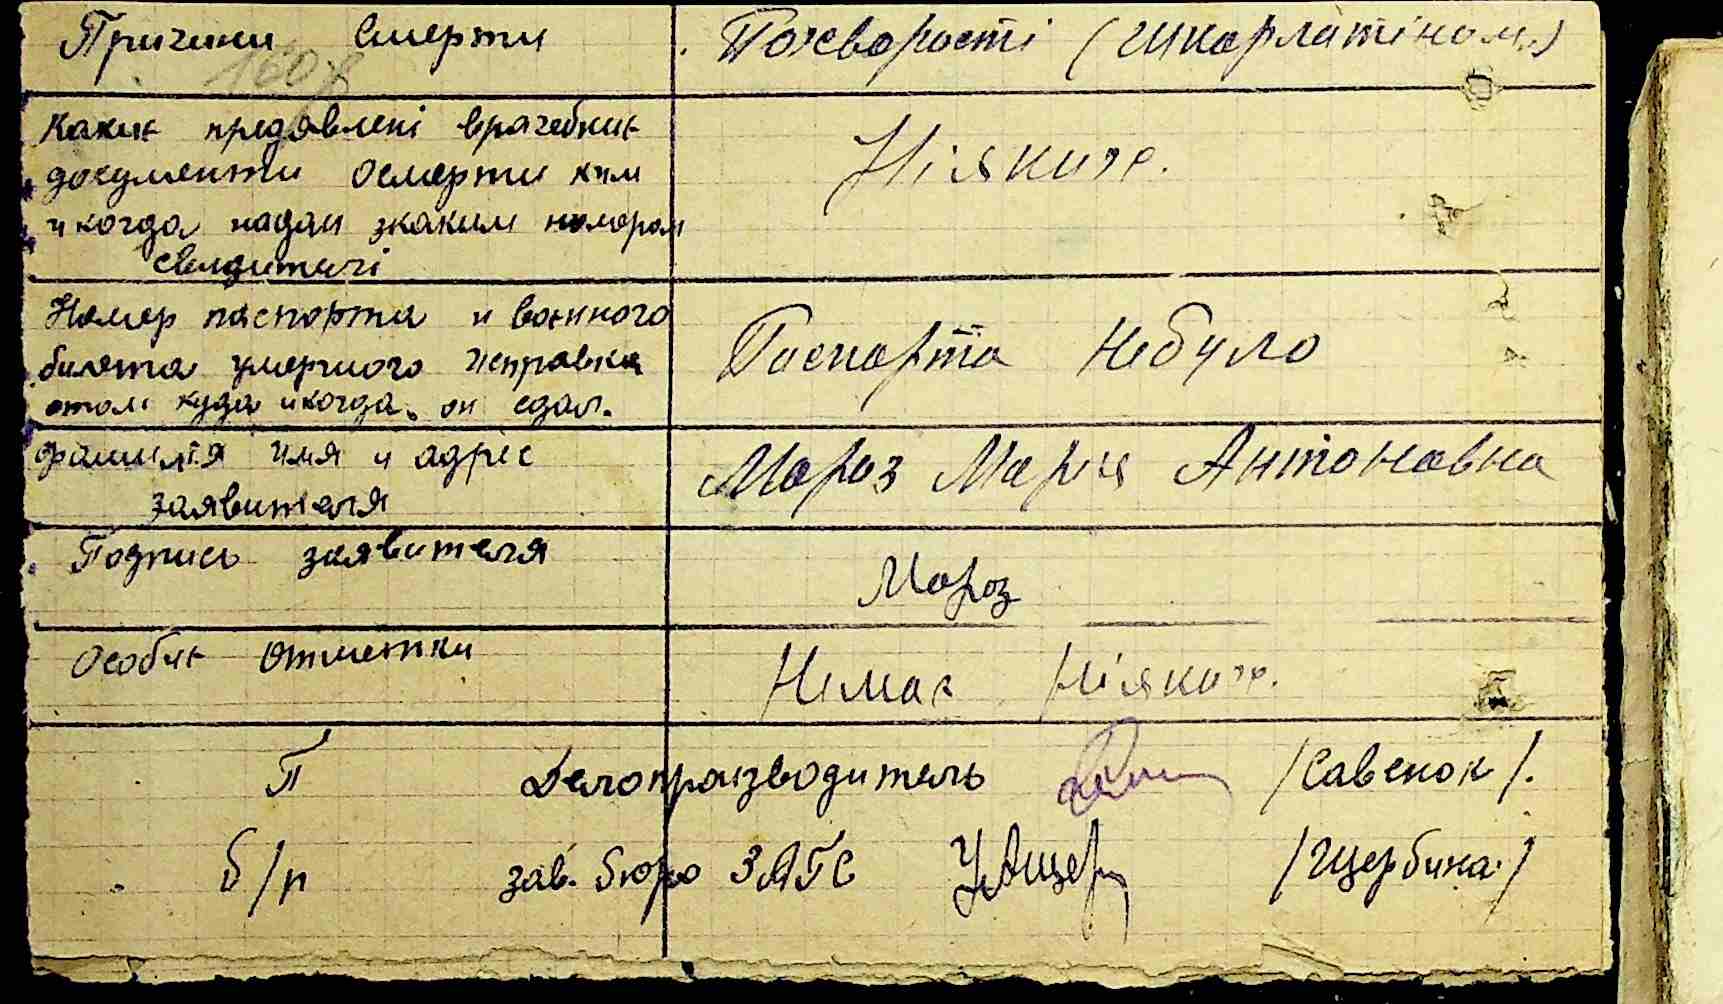 Причини смерти
По хворости (шкарлатіном)
160
Какие предявлені врачебние
документи о смерти ким
и когда надан з каким номером
Ніяких.
Номер паспорта и военного
билета умершого и справка
о том куда и когда он сдал.
Паспорта небуло
фамилія имя и адрес
заявителя
Мороз Мария Антоновна
Подпись заявителя
Мороз
Особие отметки
Немає ніяких.
П Делопроизводитель /Савенок/.
б/п зав. бюро ЗАГС /Щербина/